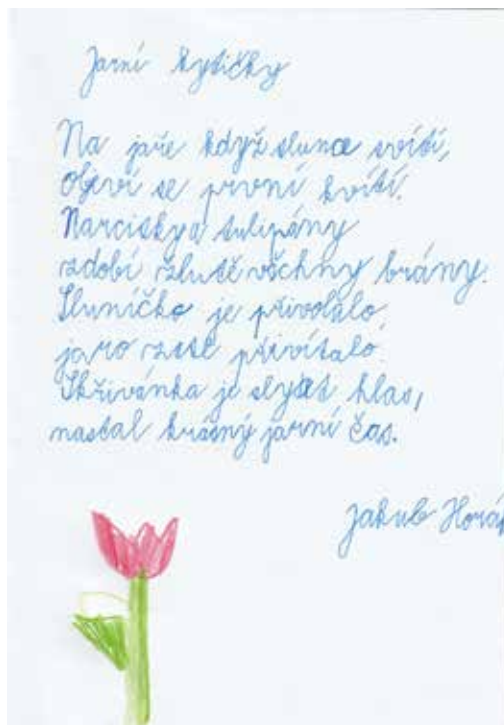 Jarní kytičky
Na jaře když slunce svítí,
objeví se první kvítí.
Narcisky a tulipány
zdobí žlutě všchny brány.
Sluníčko je přivolalo,
jaro zase přivítalo.
Skřivánka je slyšet hlas,
nastal krásný jarní čas.
Jakub Horák